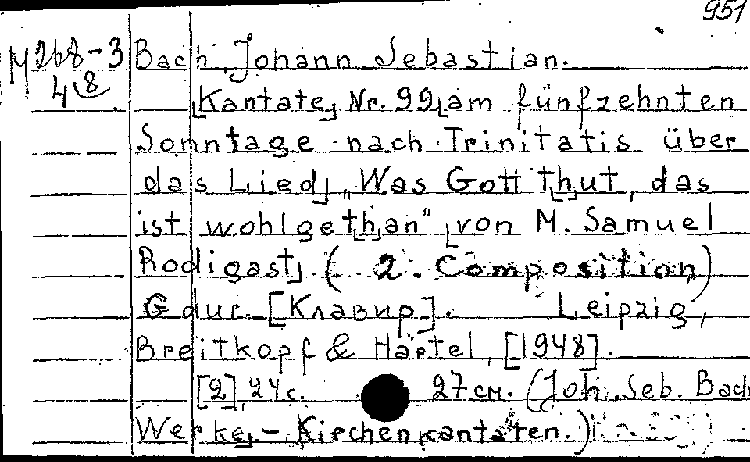 951
М 268-3 Bach, Johann Sebastian.
48 [Kantate] Nr. 99 [am fünfzehnten
Sonntage nach Trinitatis über
das Lied] „Was Gott t[h]ut, das
ist wohlget[h]an" [von M. Samuel
Rodigast]. (2. Composition)
G dur. [Клавир]. Leipzig,
Breitkopf & Härtel, [1948].
[2], 24 с. 27 см. (Joh. Seb. Bach
Werke. - Kirchenkantaten.)